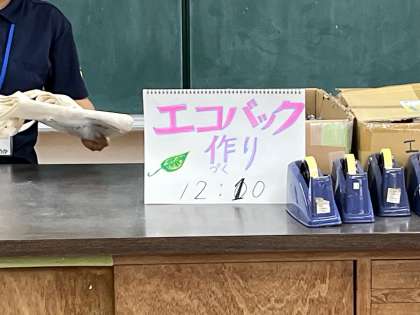 エコバック
作り
づく
12:10